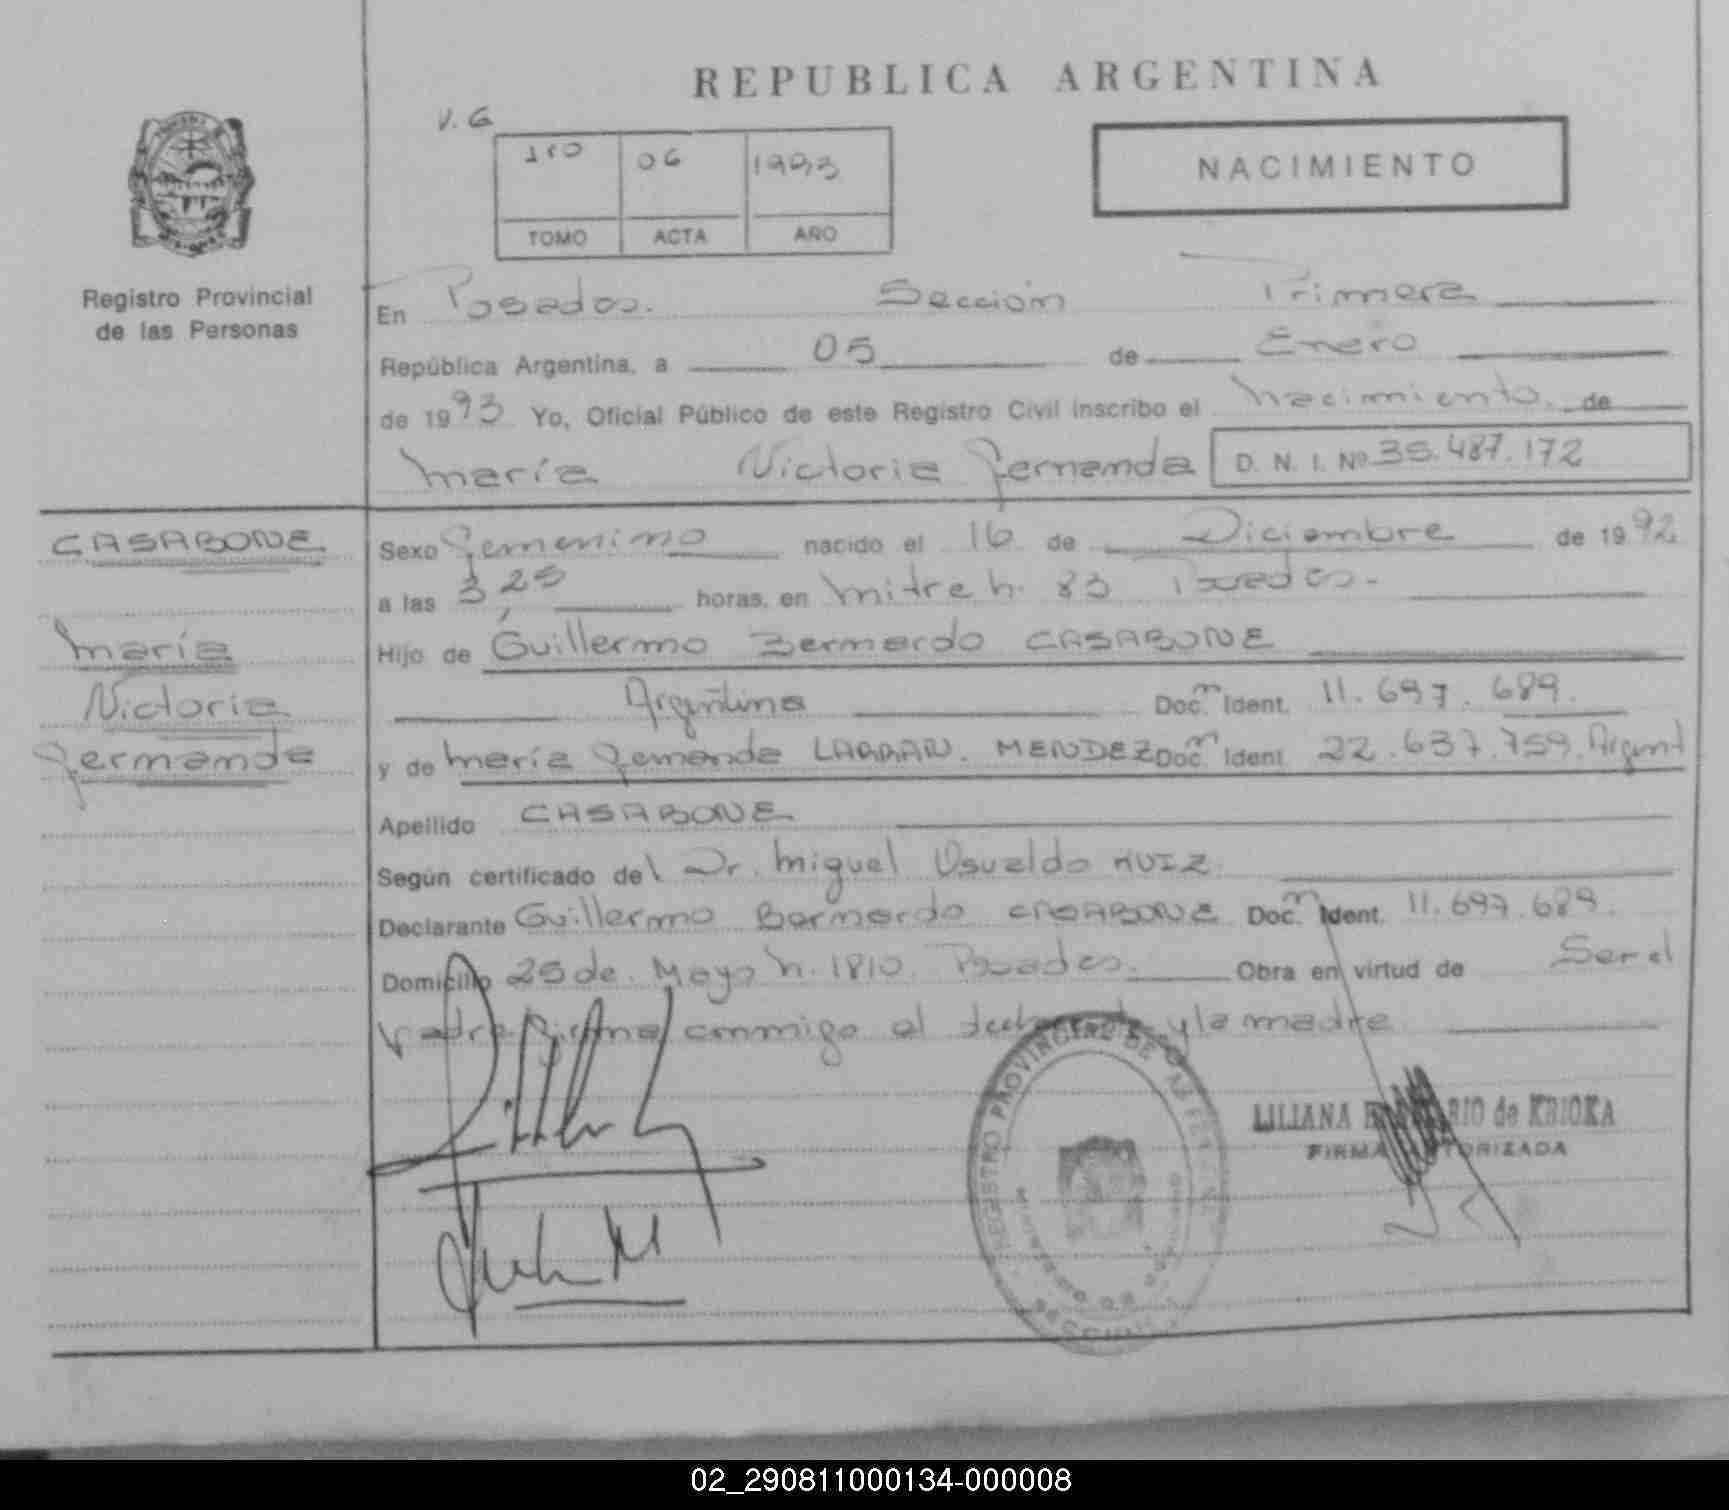 REPUBLICA ARGENTINA
V. G
1ro 06 1993
TOMO ACTA AÑO
NACIMIENTO
Registro Provincial
de las Personas
En Posadas. Sección Primera
República Argentina, a 05 de Enero
de 1993 Yo, Oficial Público de este Registro Civil inscribo el nacimiento de
María Victoria Fernanda D. N. I. Nº 35.487.172
CASABONE
María
Victoria
Fernanda
Sexo Femenino nacido el 16 de Diciembre de 1992
a las 3,25 horas, en Mitre n. 83 Posadas.
Hijo de Guillermo Bernardo CASABONE
Argentino Doc. Ident. 11.697.689.
y de María Fernanda MENDEZ Doc. Ident. 22.637.759. Argent
Apellido CASABONE
Según certificado del Dr. Miguel Osvaldo RUIZ
Declarante Guillermo Bernardo CASABONE Doc. Ident. 11.697.689.
Domicilio 25 de Mayo n. 1810. Posadas. Obra en virtud de Ser el
padre firma conmigo el declarante y la madre
REGISTRO PROVINCIAL DE LAS PERSONAS
SECCION
LILIANA de KRIOKA
FIRMA AUTORIZADA
02_290811000134-000008